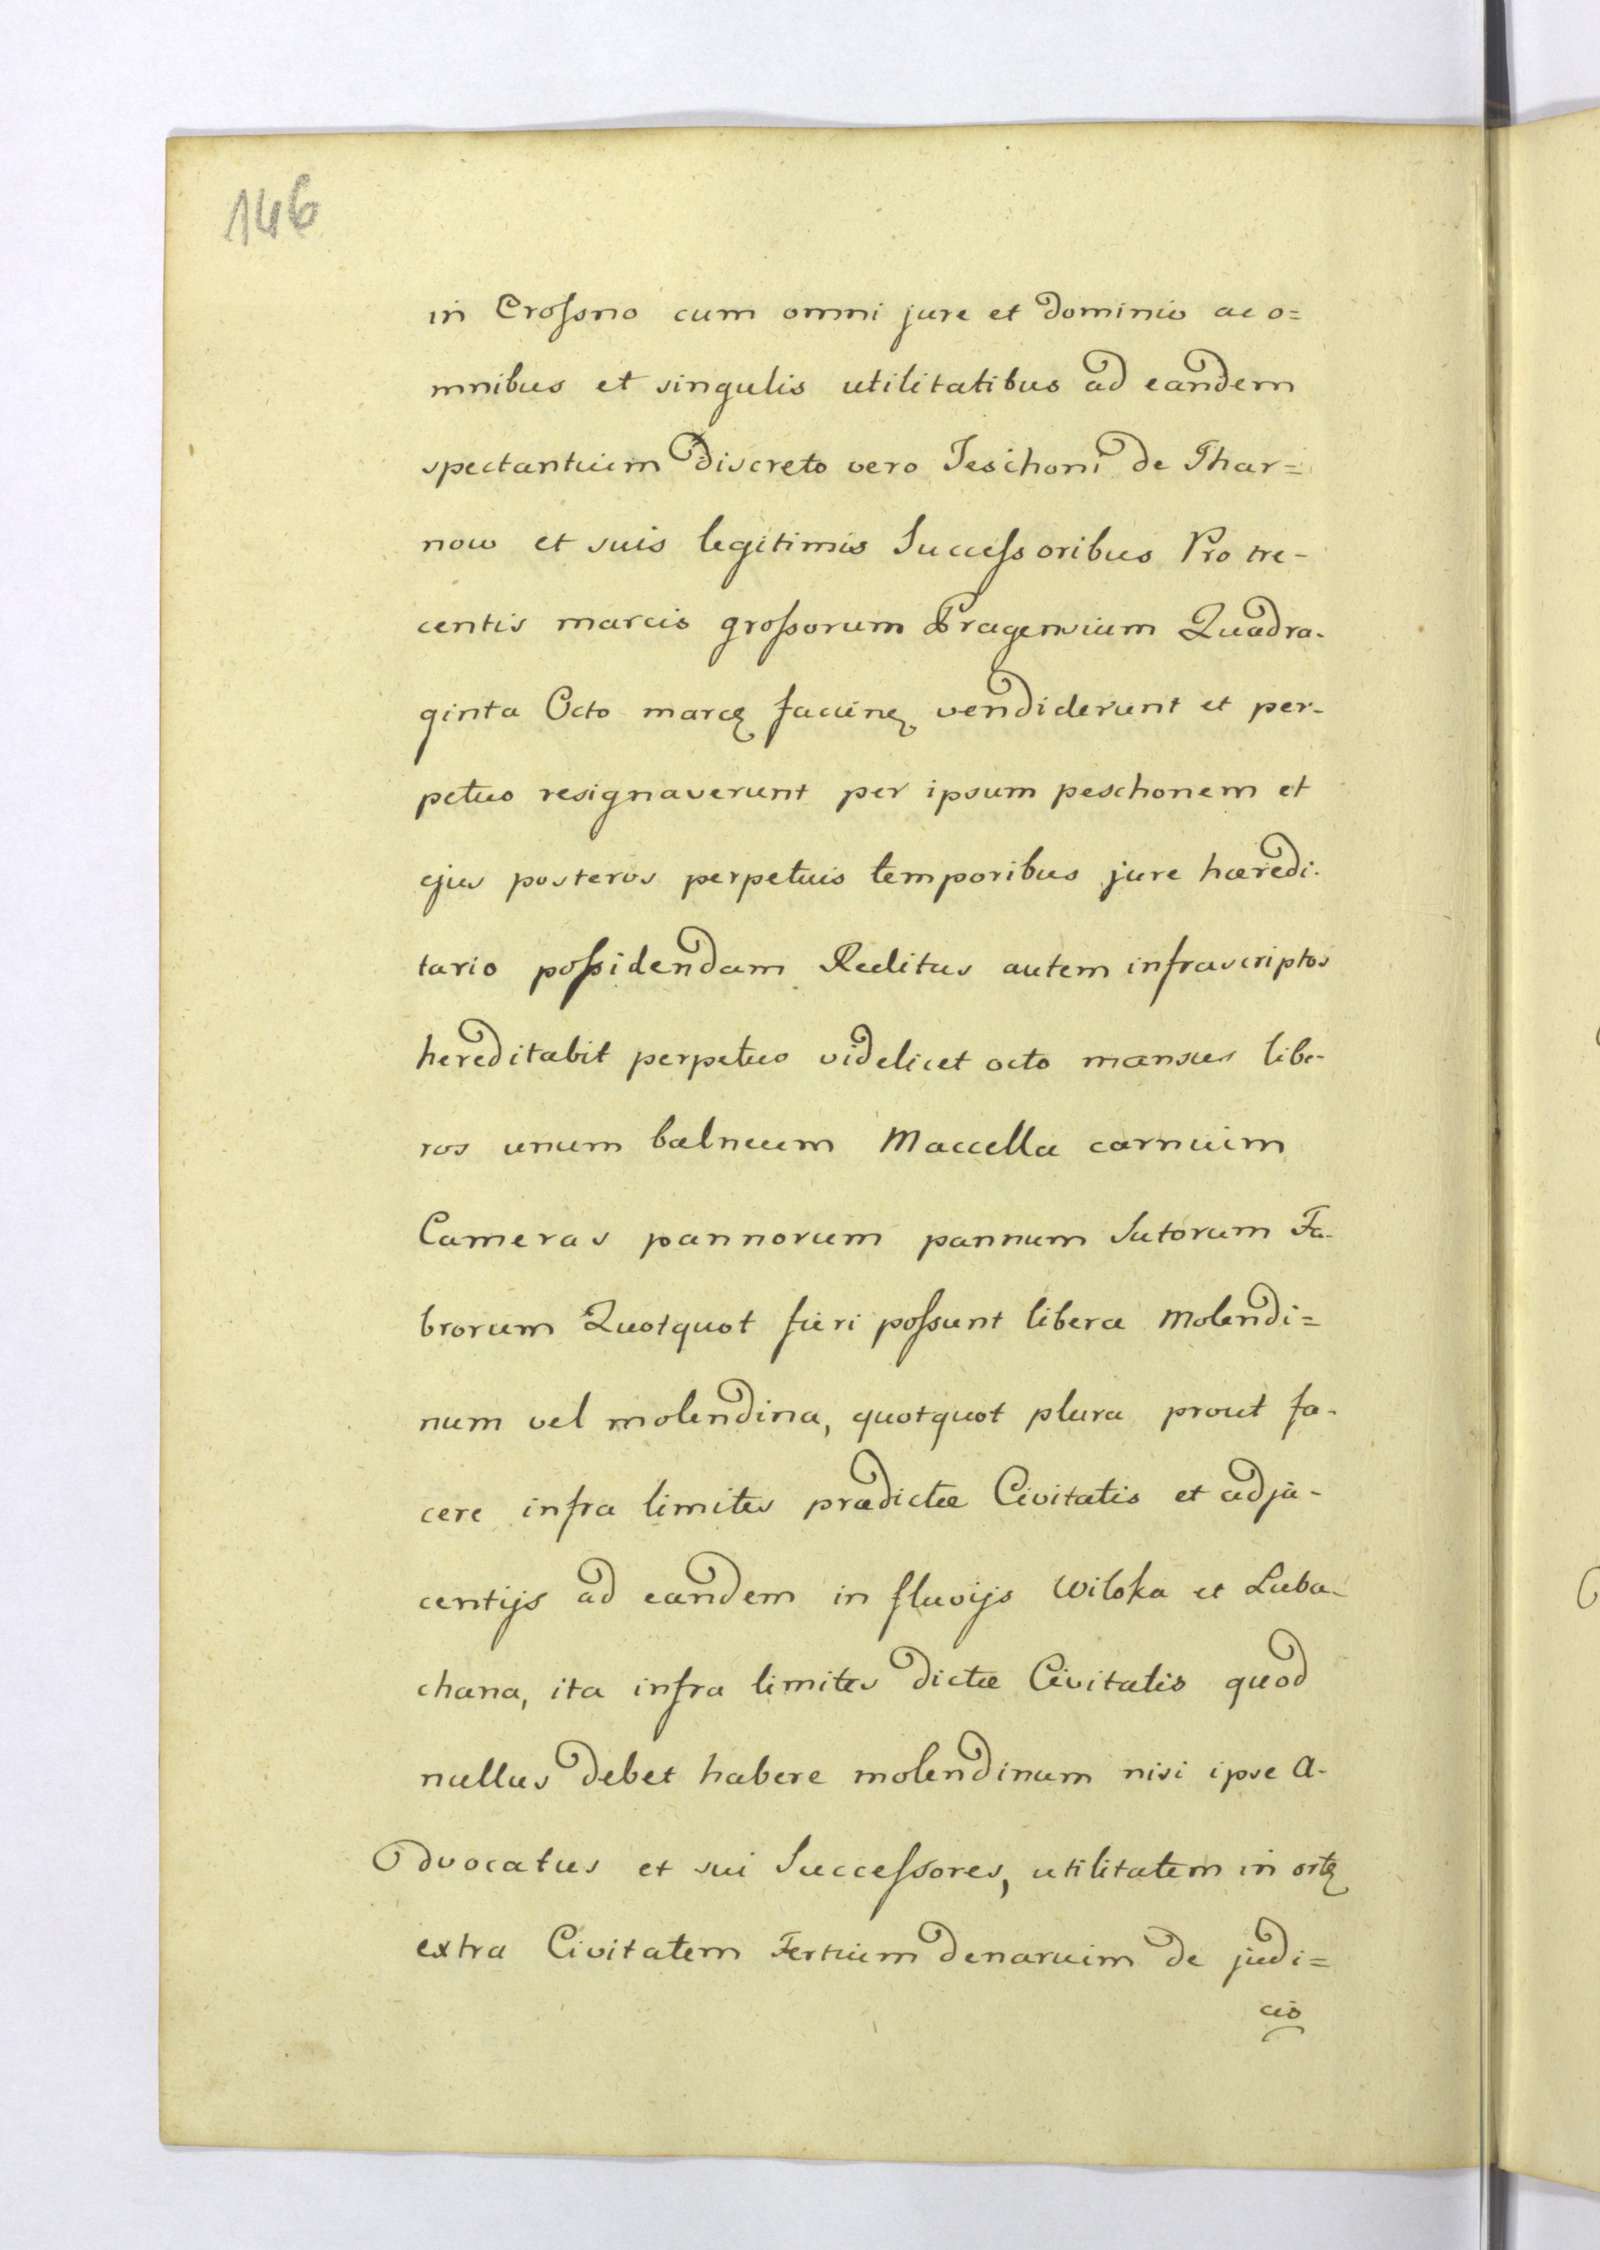 146
in Crosſno cum omni jure et dominio ac o=
mnibus et singulis utilitatibus ad eandem
spectantium discreto vero Jeschoni de Thar=
now et suis legitimis Succeſsoribus Pro tre-
centis marcis groſsorum Pragensium Quadra-
ginta Octo marcę facinę vendiderunt et per-
petuo resignaverunt per ipsum peschonem et
ejus posteros perpetuis temporibus jure hæredi-
tario poſsidendam Reditus autem infrascriptos
hereditabit perpetuo videlicet octo mansus libe-
ros unum balneum Maccella carnium
Cameras pannorum pannum Sutorum Fa-
brorum Quotquot fieri poſsunt libera Molendi=
num vel molendina, quotquot plura prout fa-
cere infra limites prædictæ Civitatis et adja-
centijs ad eandem in fluvijs Wiloka et Luba-
chana, ita infra limites dictæ Civitatis quod
nullus debet habere molendinum nisi ipse A-
dvocatus et sui Succeſsores, utilitatem in ortę
extra Civitatem Tertium denarium de judi=
cio